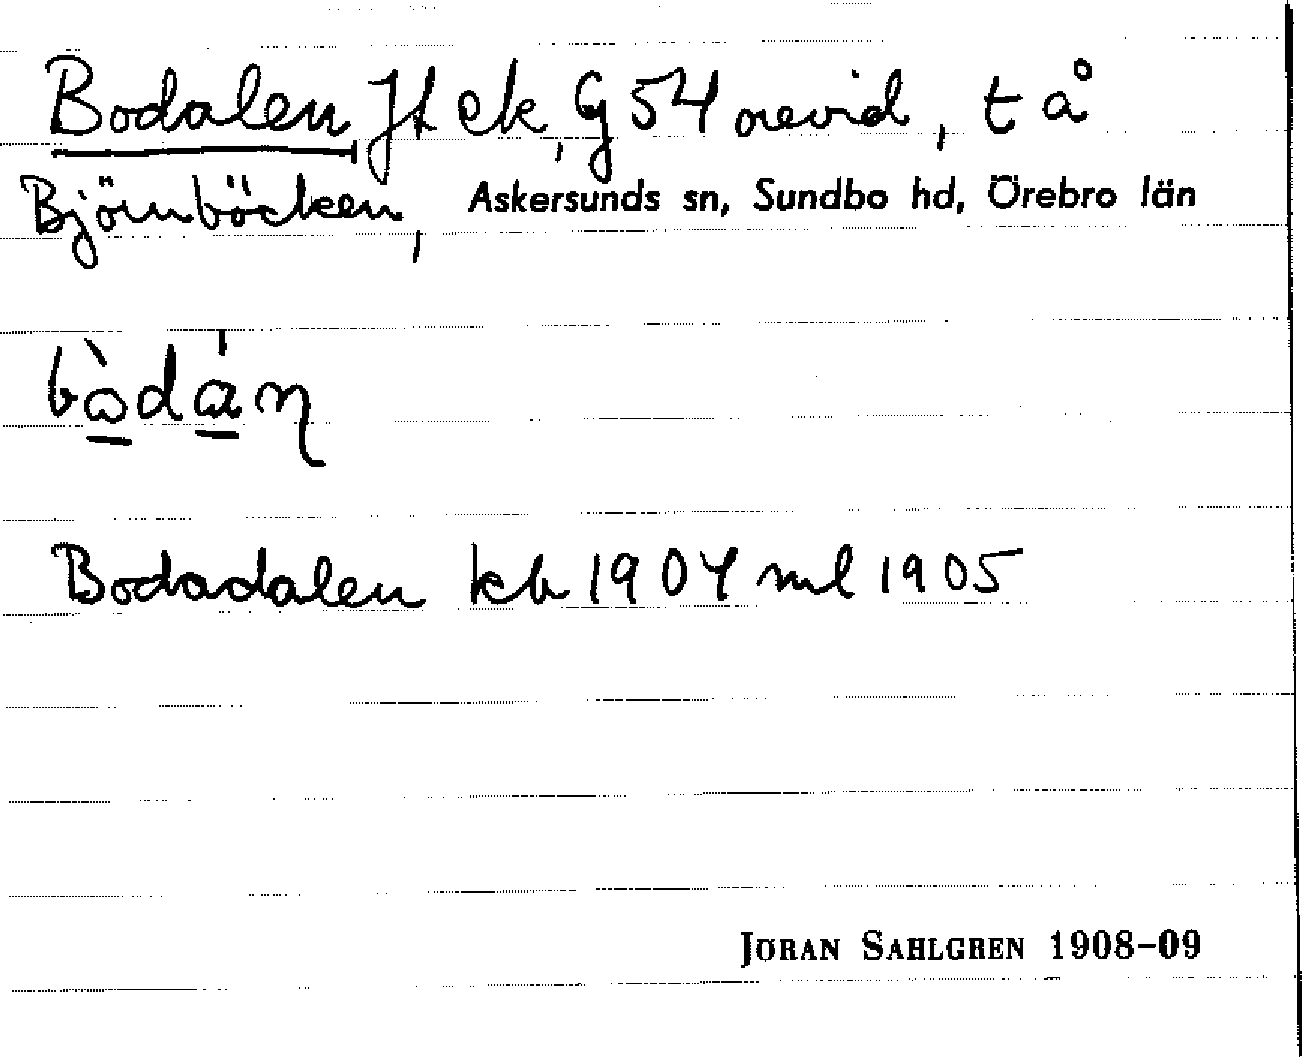 Bodalen Jt ek, G 54 nevid, t å
Björnböcken, Askersunds sn, Sundbo hd, Örebro län
bòdán
Bodadalen kb 1904 ml 1905
JÖRAN SAHLGREN 1908–09